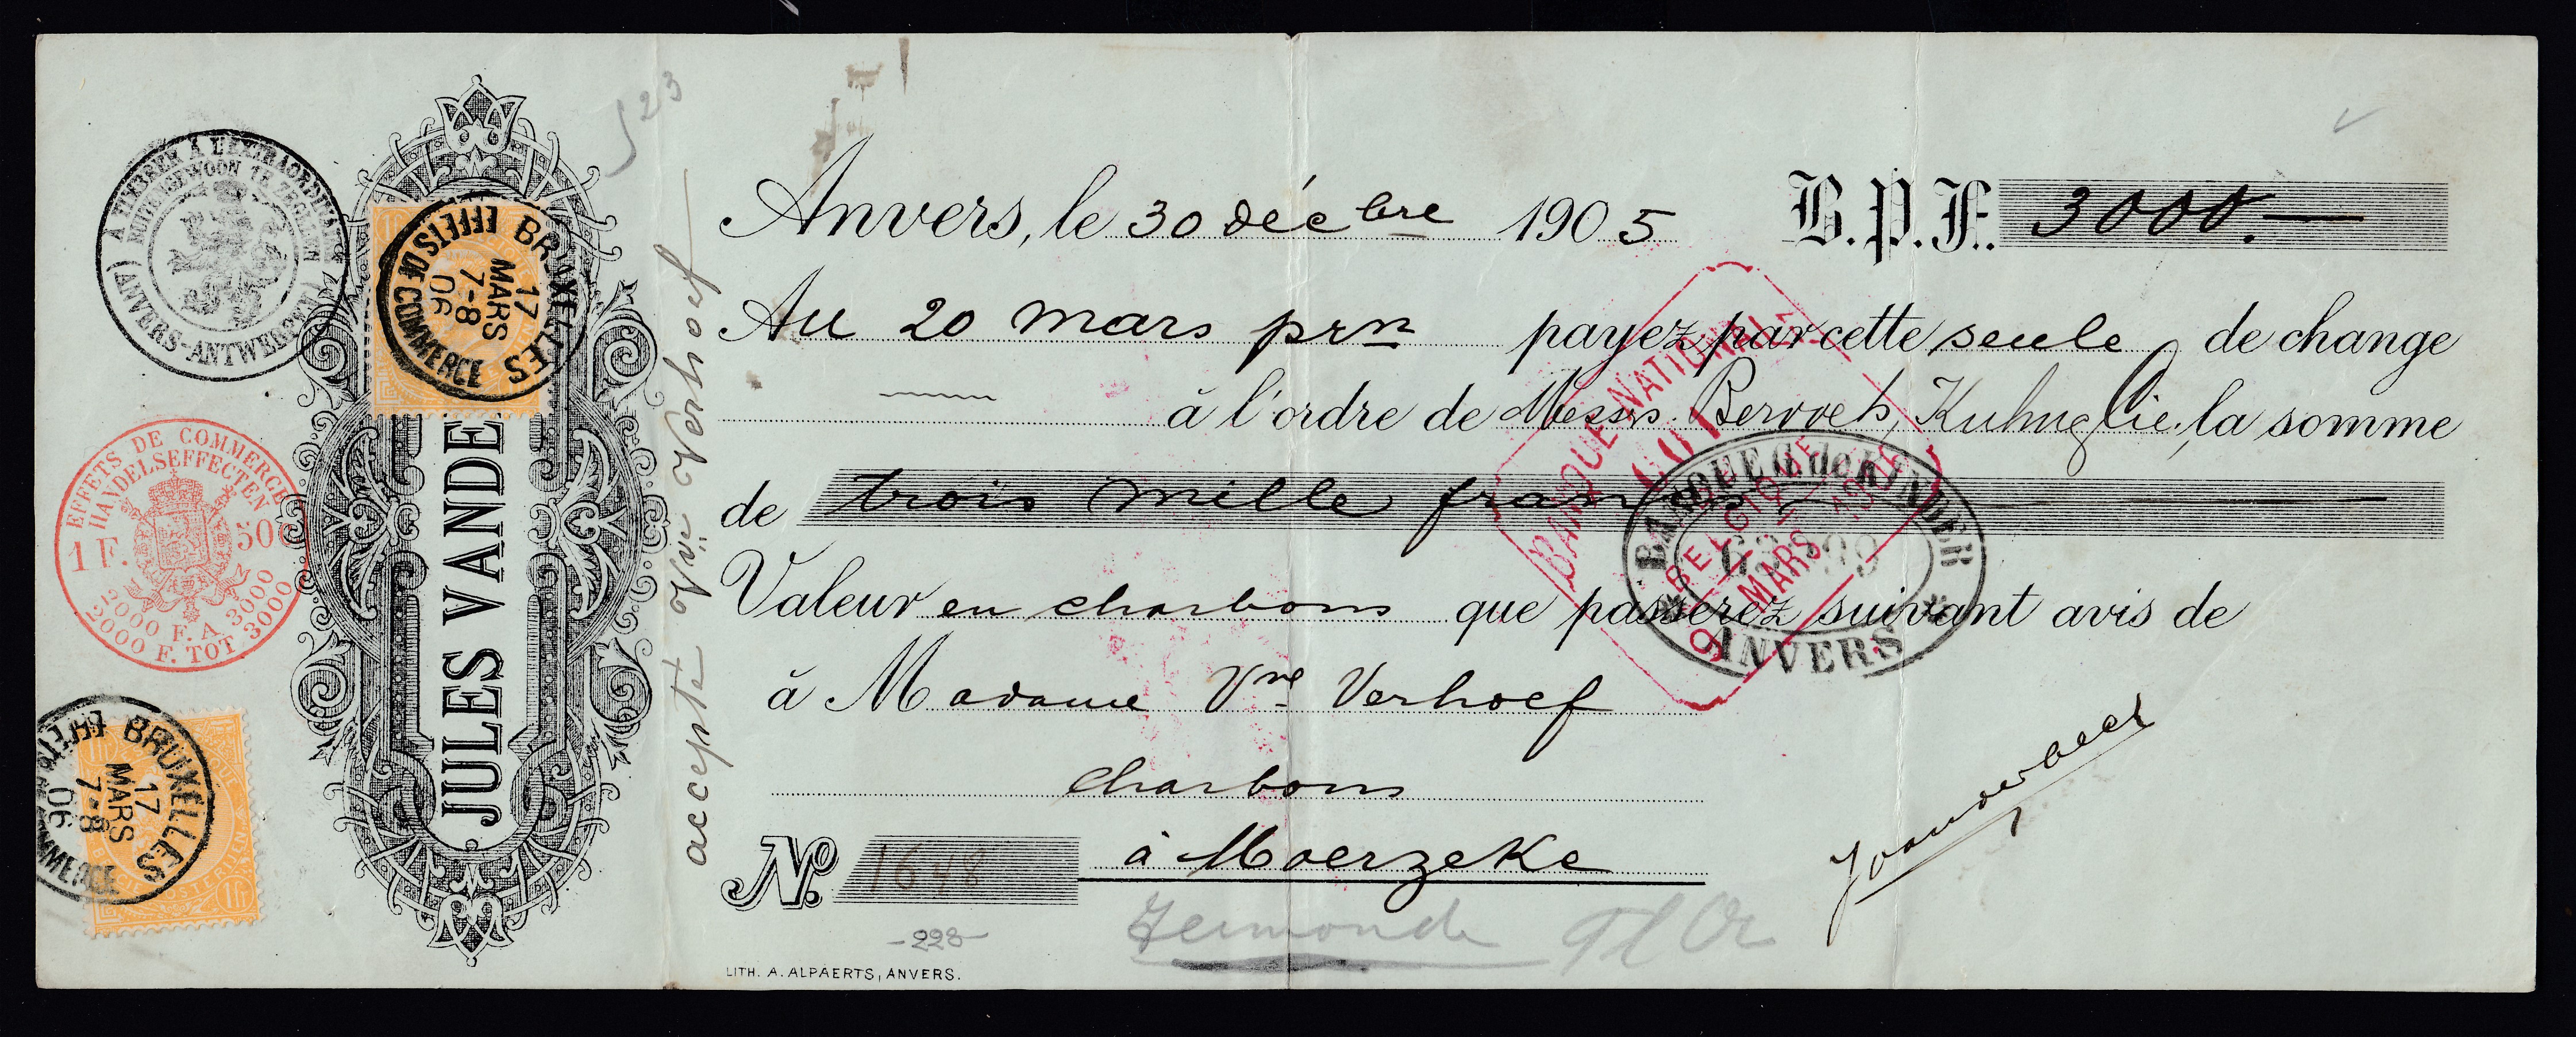 A TIMBRER A L'EXTRAORDINAIRE
BUITENGEWOON TE ZEGELEN
(ANVERS-ANTWERPEN)
EFFETS DE COMMERCE
HANDELSEFFECTEN
1 F. 50 C
2000 F. A 3000
2000 F. TOT 3000
BRUXELLES
17
MARS
7-8
06
EFFETS DE COMMERCE
BRUXELLES
17
MARS
7-8
06
JULES VANDE
accepté Vve Verhoef
523
Anvers, le 30 décbre 1905 B.P.F. 3000.—
Au 20 mars prn payez par cette seule de change
à l'ordre de Messrs. Bervoets, Kuhn & Cie, la somme
de trois mille francs
Valeur en charbons que passerez suivant avis de
à Madame Vve Verhoef
charbons
à Moerzeke
No. 1648
Jvanderbeek
BANQUE NATIONALE
BELGIQUE
MARS
BANQUE G de KINDER
ANVERS
-228-
Termonde Fl Or
LITH. A. ALPAERTS, ANVERS.